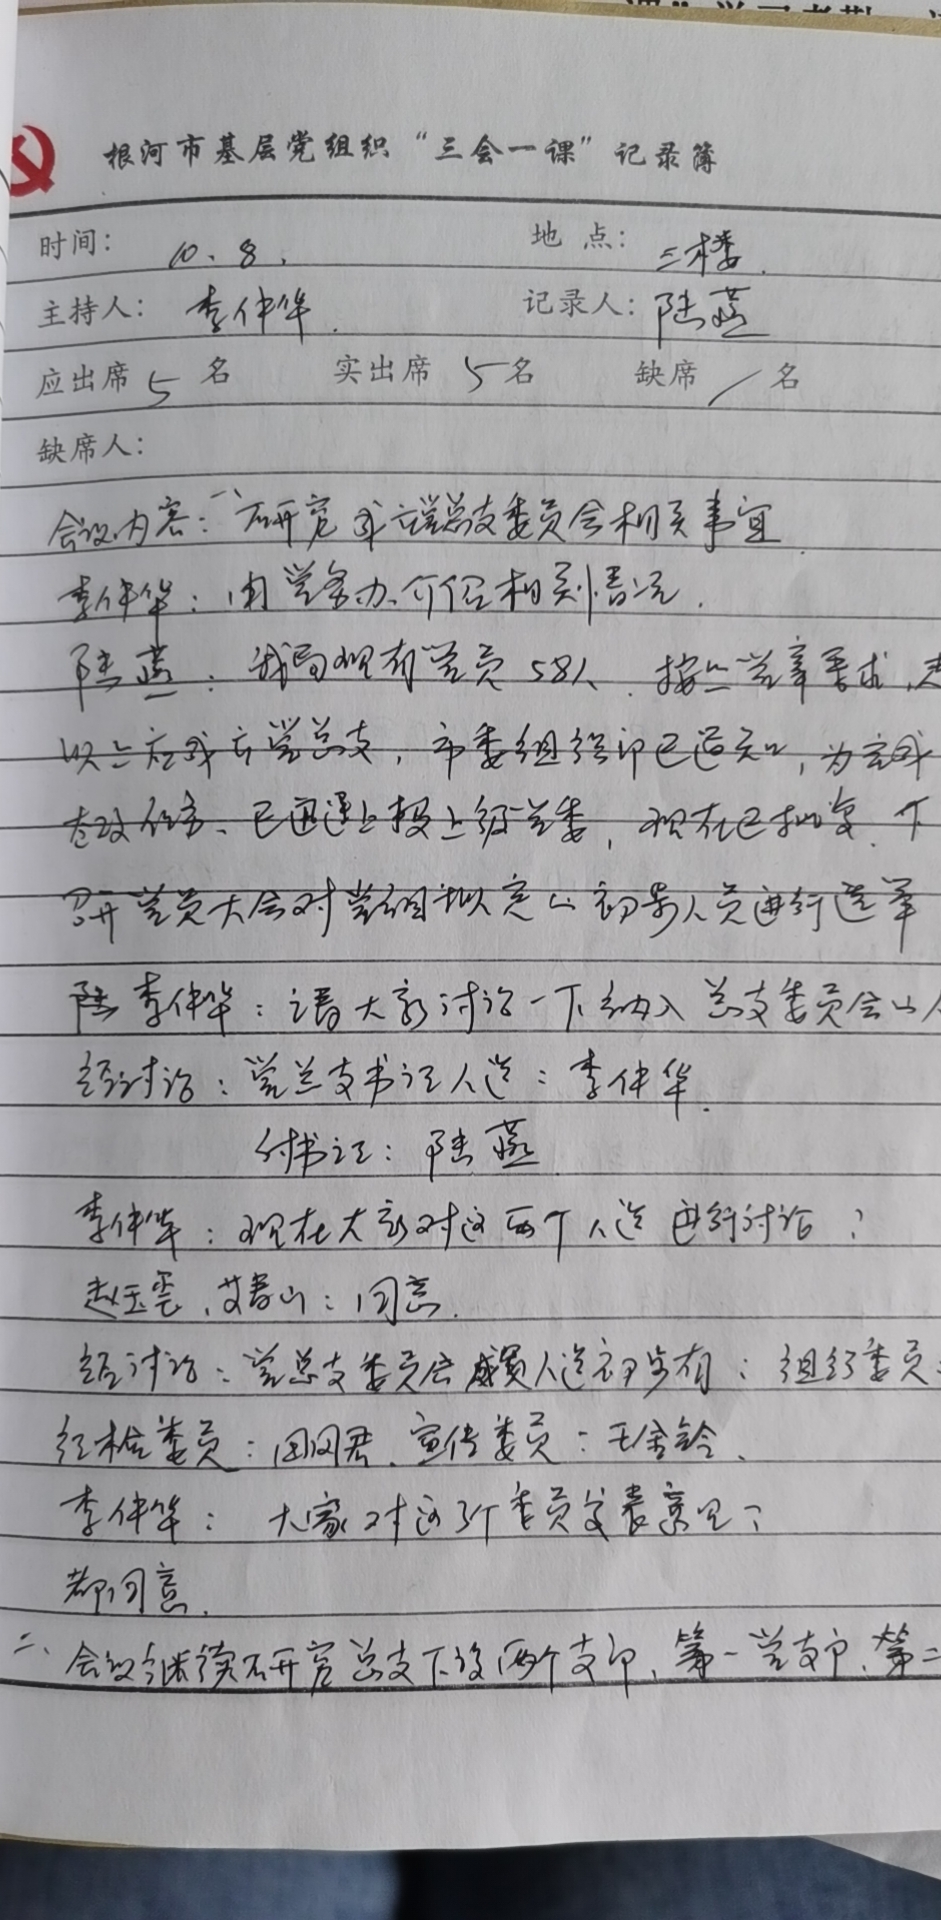 根河市基层党组织“三会一课”记录簿
时间： 10.8. 地点： 三楼.
主持人： 李仲华. 记录人： 陆燕
应出席 5 名 实出席 5 名 缺席 / 名
缺席人：
会议内容：一、研究成立党总支委员会相关事宜
李仲华：由党务办介绍相关情况.
陆燕：我局现有党员58人. 按照党章要求,
以上应成立党总支, 市委组织部已通知, 为完成
任务、已迅速上报上级党委, 现在已批复. 下
召开党员大会对党组拟定的初步人员进行选举
李仲华：请大家讨论一下纳入总支委员会的人
经讨论：党总支书记人选：李仲华.
付书记：陆燕
李仲华：现在大家对这两个人选进行讨论？
赵玉霞、艾春山：同意.
经讨论：党总支委员会成员人选初步有：组织委员：
纪检委员：田闵君、宣传委员：王金铃、
李仲华：大家对这3个委员发表意见？
都同意.
二、会议继续研究总支下设两个支部、第一党支部、第二